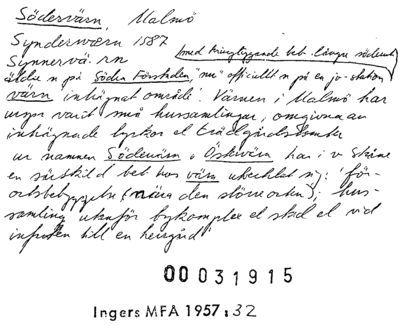 Södervärn, Malmö
Synderværn 1587
Synnervä.rn med kringliggande beb. längre söderut
äldre n på Södra Förstaden, "nu" officiellt n på en jv-station
värn 'inhägnat område'. Värnen i Malmö har
urspr varit små hussamlingar, omgivna av
inhägnade lyckor el trädgårdstomter
ur namnen Södervärn o Östervärn har i v Skåne
en särskild bet hos värn utvecklat sig: 'för-
ortsbebyggelse (nära den större orten); hus-
samling utanför bykomplex el stad el vid
infarten till en herrgård'
00031915
Ingers MFA 1957:32